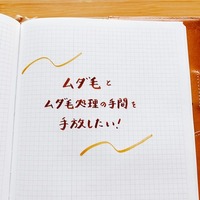 ムダ毛と
ムダ毛処理の手間を
手放したい!